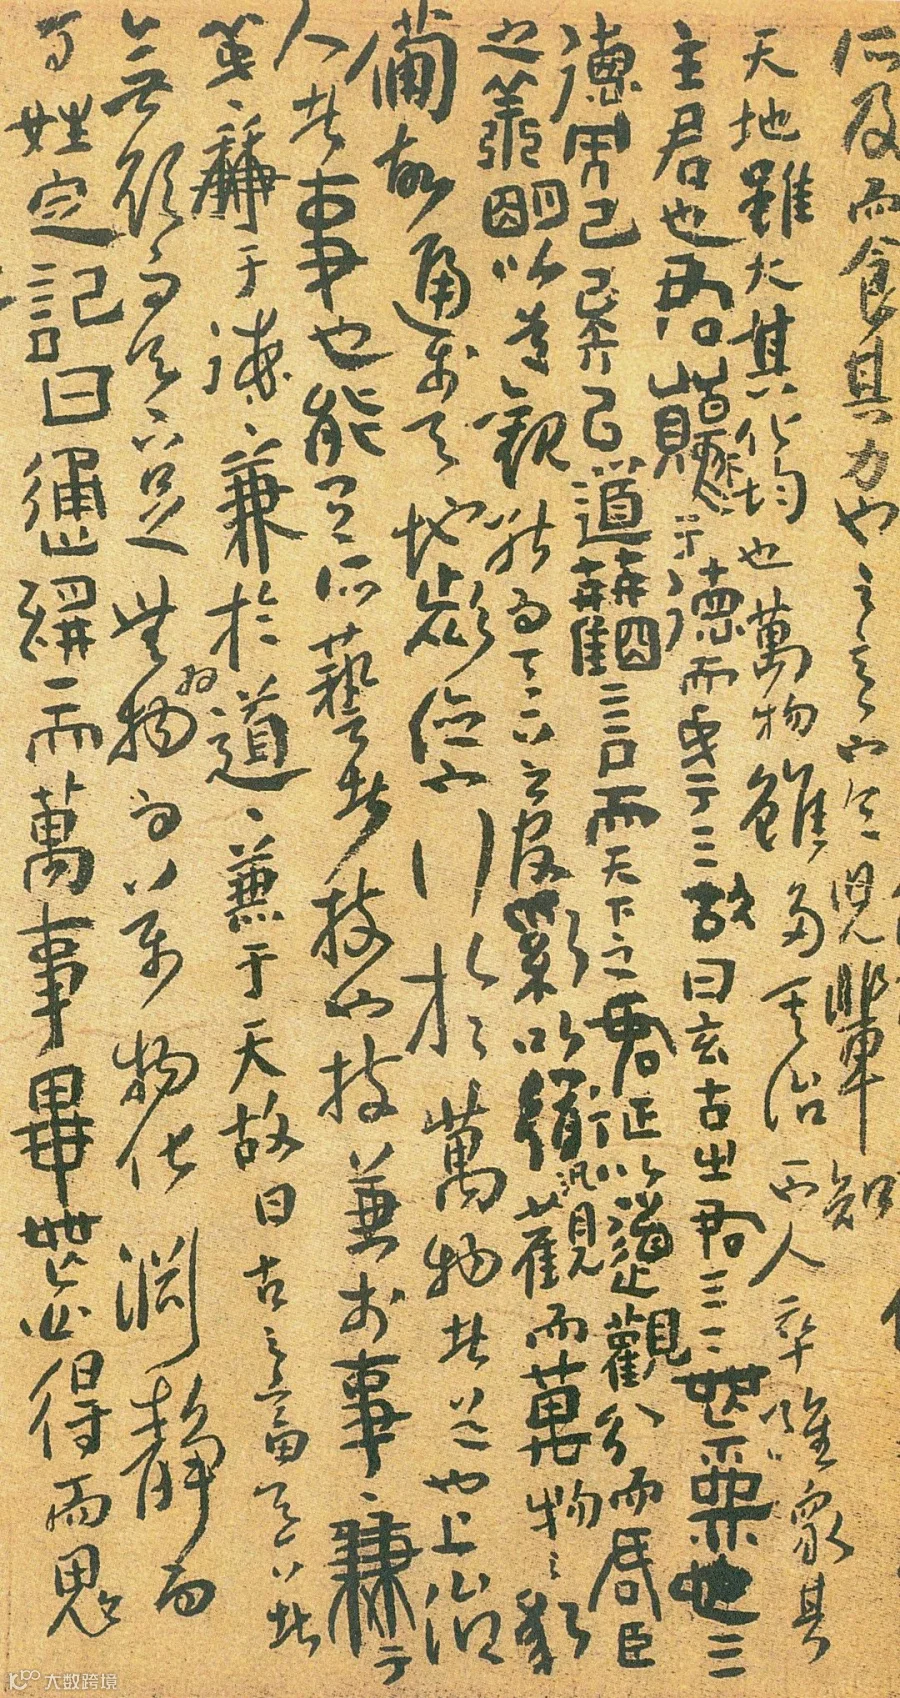 所及而食其力也
天地雖大其化均也萬物雖多其治人卒雖衆其
主君也君原于德而成于天故曰玄古之君天下無爲也天
德而已矣以道觀言而天下之君正以道觀分而君臣
之義明以道觀能而天下之官治以道汎觀而萬物之應
備故通於天地者德也行於萬物者道也上治
人者事也能有所藝者技也技兼於事、兼于
義、兼于德、兼於道、兼于天故曰古之畜天下者
無欲而天下足無爲而萬物化淵靜而
百姓定記曰通於一而萬事畢無心得而鬼
大数跨境